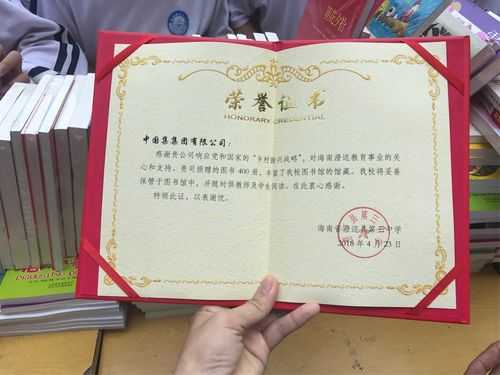 荣誉证书
HONORARY CREDENTIAL
中国集集团有限公司:
感谢贵公司响应党和国家的“乡村振兴战略”,对海南澄迈教育事业的关
心和支持。贵司捐赠的图书400册,丰富了我校图书馆的馆藏。我校将妥善
保管于图书馆中,并随时供教师及学生阅读。在此衷心感谢。
特颁此证,以表谢忱。
海南省澄迈县第三中学
2018年4月23日